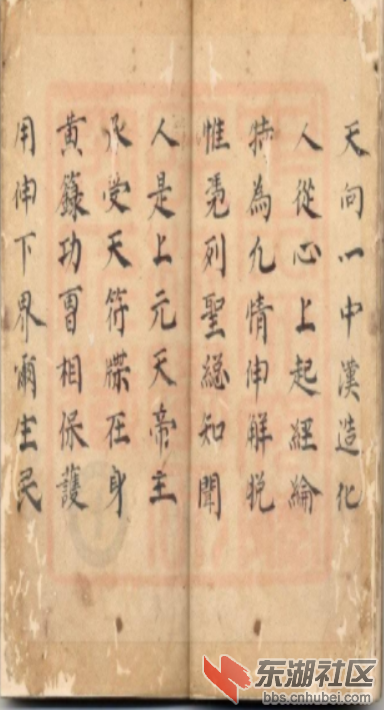 天向一中漢造化
人從心上起經綸
特為九情伸觧脫
惟列聖緫知聞
人是上元天帝主
承受天符牒在身
黃籙功曹相保護
用伸下界爾生民
东湖社区
bbs.cnhubei.com